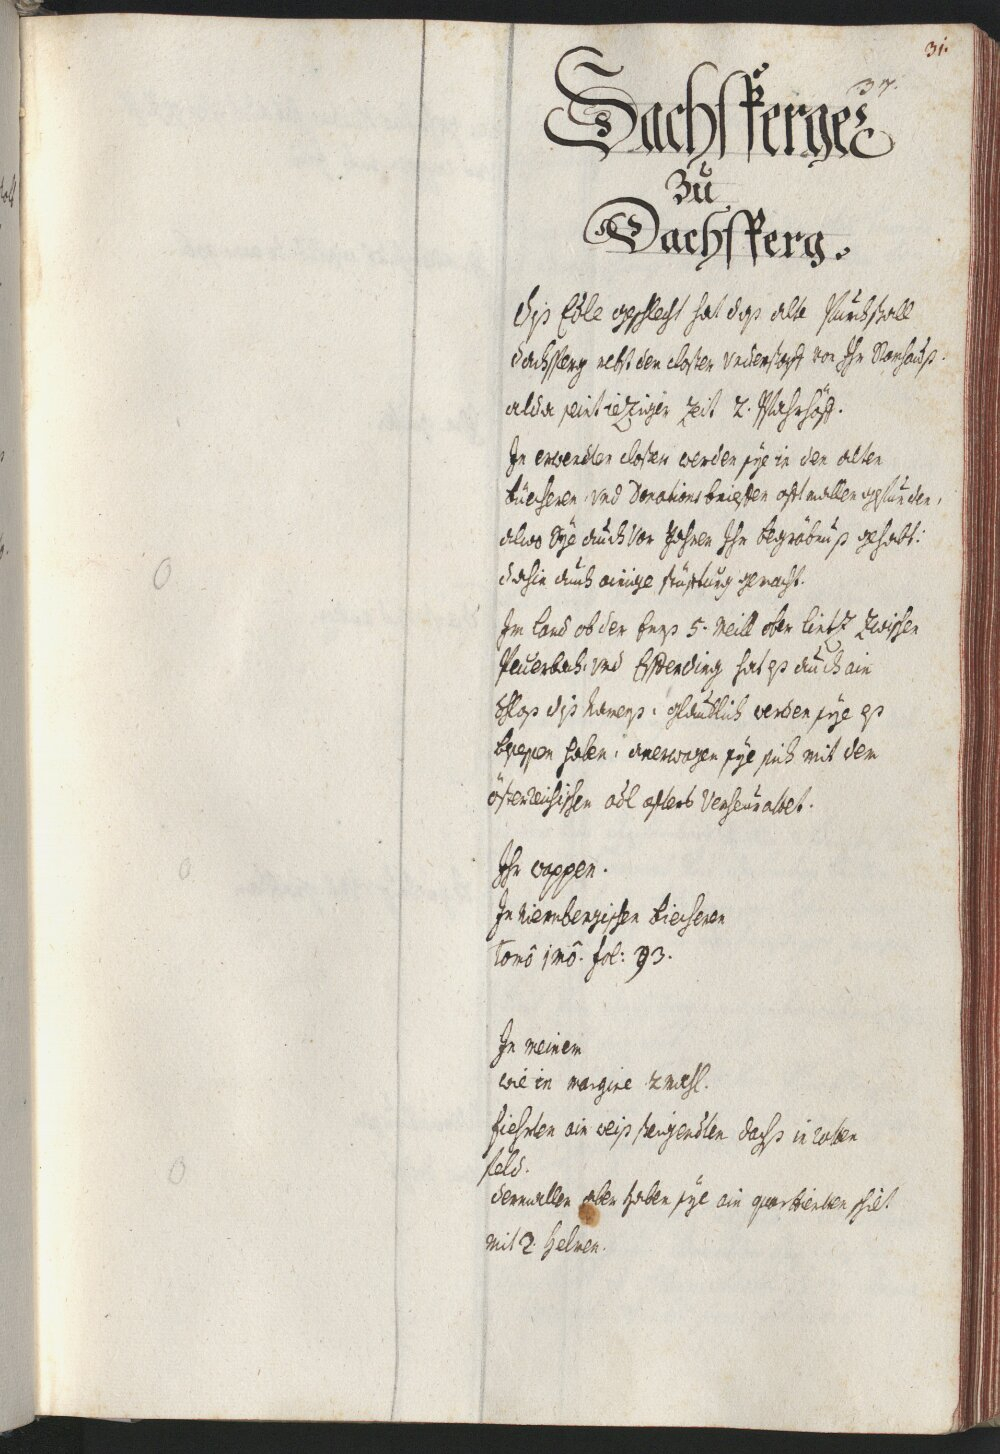 31.
37.
Dachsperger
zu
Dachsperg.
Dis Edle geschlecht hat das alte Purckstall
dachsperg nebst den closter vnderhast von Ihr Stamhaus.
alda seint iezziger zeit 2. Mayrhöff.
In erwendten closter werden sye in den alten
büecheren vnd Donations brieffen osstmallen gefunden,
alwo Sye auch vor Jahren Ihr begräbnus gehabt:
dahin auch ainige stüfftung gemacht.
Im Land ob der Enns 5. Meill ober Lintz zwischen
Peuerbach vnd Efferding hat es auch ain
Schlos dis Namens: glaublich werden sye es
besessen haben, anerwogen sye sich mit dem
österreichischen adl offters verheurathet.
Ihr wappen.
In Niernbergischen biecheren
Tomô 1mô. fol: 93.
In meinem
wie in margine zmahl.
Fiehrten ain weis steigendten dachs in rothen
feld.
dermallen aber haben sye ain quartierten schilt
mit 2. Helmen.